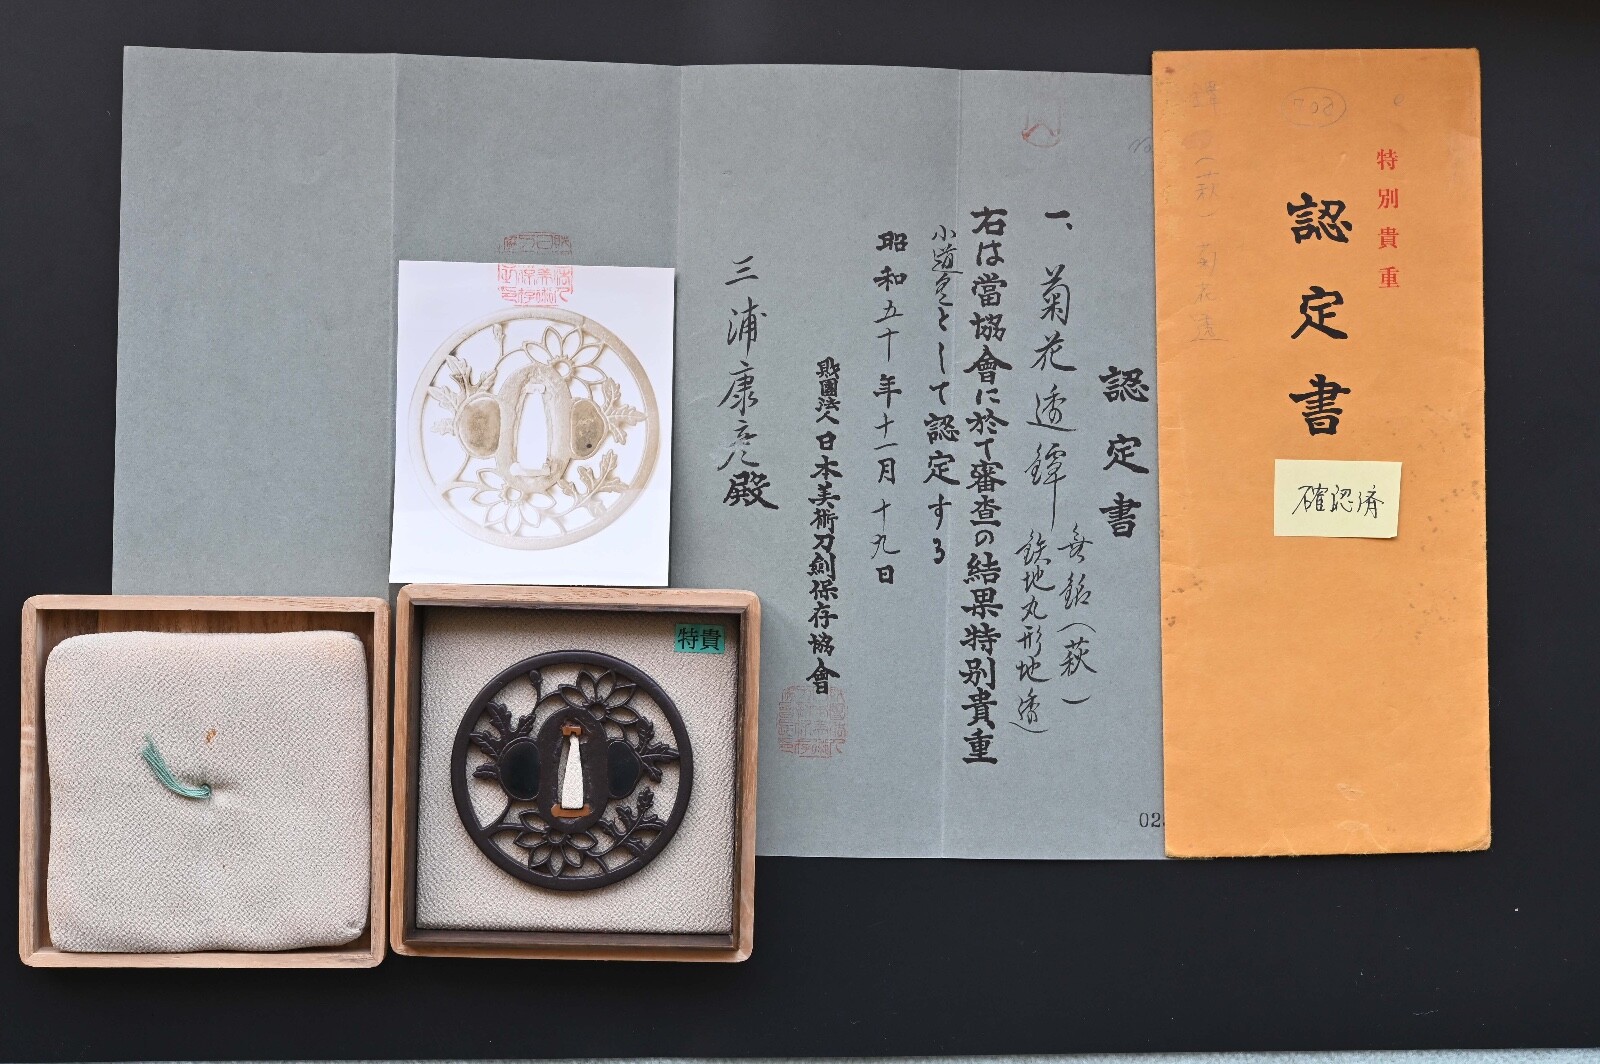 特別貴重
認定書
確認済
認定書
一、菊花透鐔 無銘(萩)
鉄地丸形地透
右は當協會に於て審査の結果特別貴重
小道具として認定する
昭和五十年十一月十九日
財團法人日本美術刀劍保存協會
三浦康彦殿
特貴